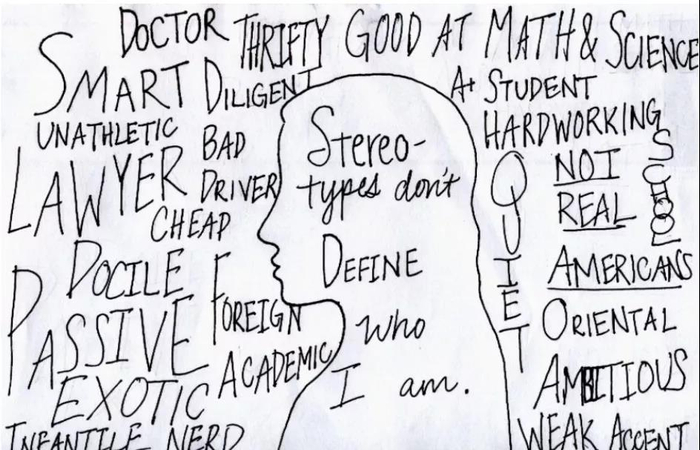 DOCTOR
THRIFTY
GOOD AT MATH & SCIENCE
SMART
DILIGENT
A+ STUDENT
UNATHLETIC
BAD
DRIVER
HARDWORKING
LAWYER
CHEAP
Stereo-
types don't
DEFINE
who
I am.
QUIET
NOT
REAL
AMERICANS
DOCILE
FOREIGN
ORIENTAL
PASSIVE
ACADEMIC
AMBITIOUS
EXOTIC
INFANTILE
NERD
WEAK
ACCENT